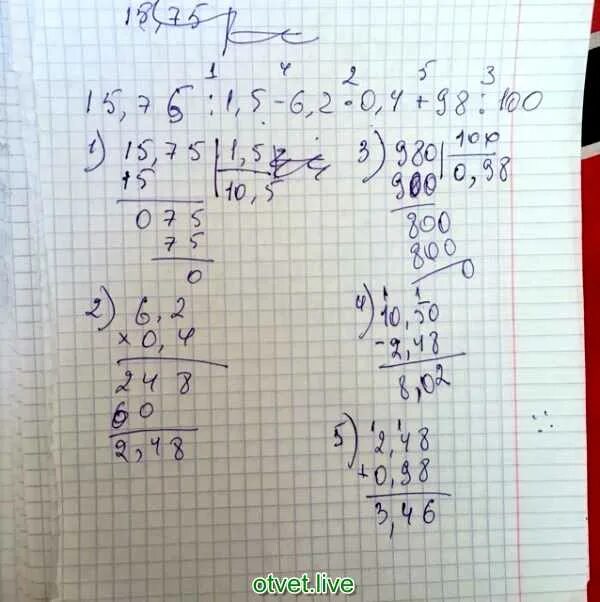 15,75
1 4 2 5 3
15,75 : 1,5 - 6,2 · 0,4 + 98 : 100
1) 15,75 | 1,5
15 | 10,5
075
75
0
3) 980 | 100
900 | 0,98
800
800
0
2) 6,2
× 0,4
248
00
2,48
4) 10,50
- 2,48
8,02
5) 2,48
+ 0,98
3,46
otvet.live